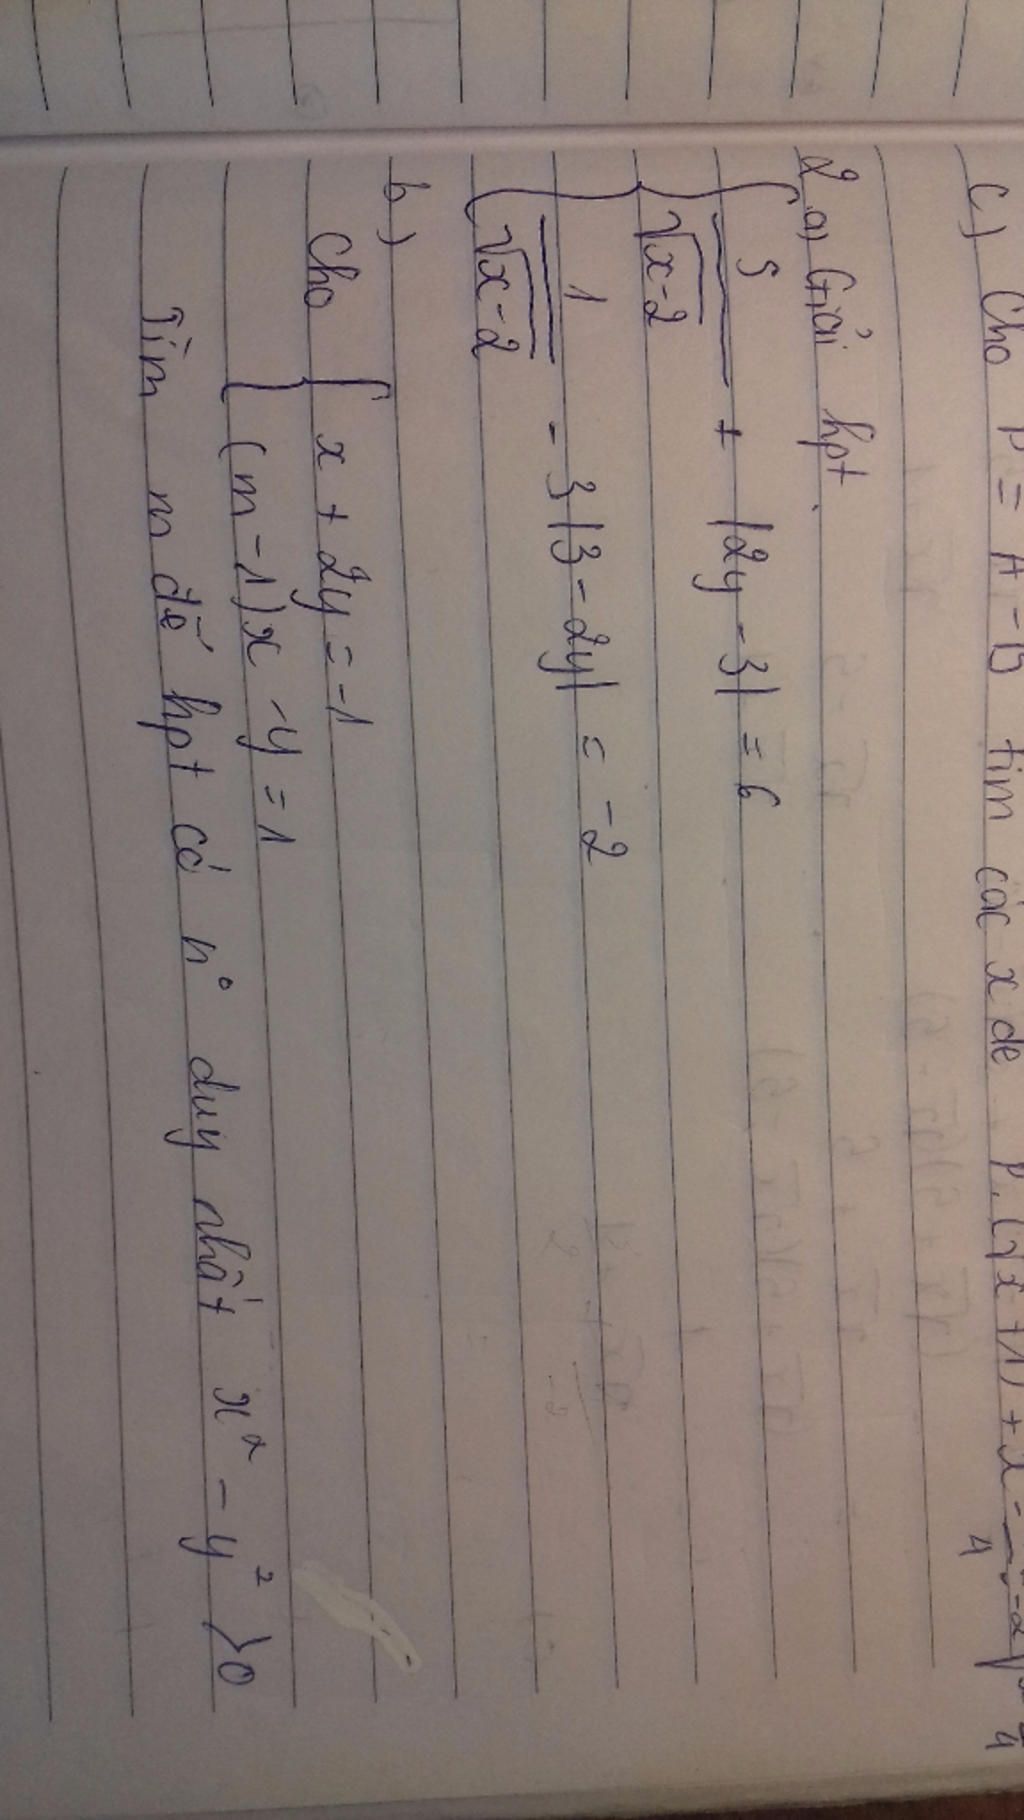 c) Cho P = A - B tìm các x de P. (√x + 1) + x -
2 a) Giải hpt.
{ 5/√x-2 + |2y - 3| = 6
1/√x-2 - 3|3 - 2y| = -2
b)
Cho { x + 2y = -1
(m - 1)x - y = 1
Tìm m để hpt có n° duy nhất x² - y² > 0